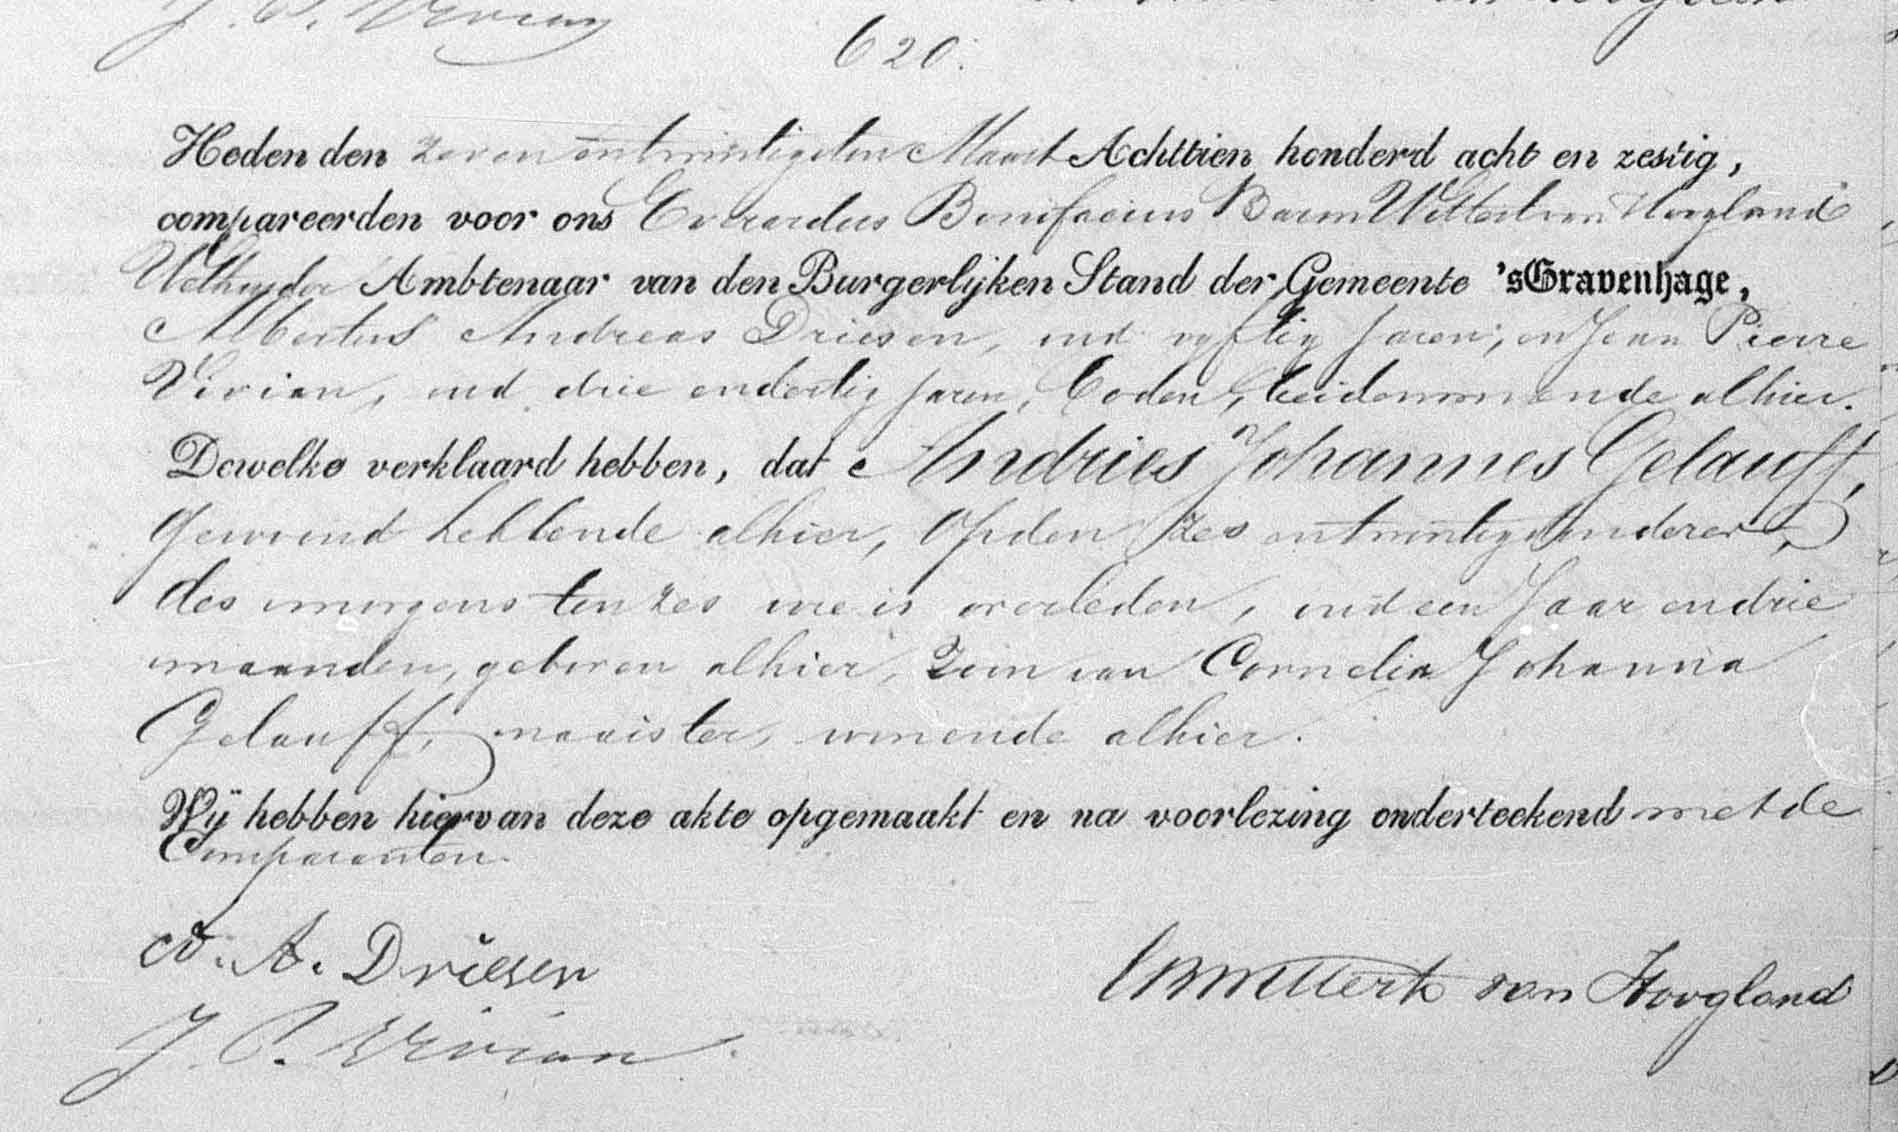 J. P. Vivian
620.
Heden den zeven en twintigsten Maart Achttien honderd acht en zestig,
compareerden voor ons Evrardus Bonifacius Baron Wittert van Hoogland
Wethouder Ambtenaar van den Burgerlijken Stand der Gemeente 'sGravenhage,
Albertus Andreas Driesen, oud vyftig Jaren, en Jean Pierre
Vivian, oud drie en dertig Jaren, Boden, beide wonende alhier.
Dewelke verklaard hebben, dat Andries Johannes Gelauff,
gewoond hebbende alhier, op den zes en twintigsten dezer,
des morgens ten zes ure is overleden, oud een Jaar en drie
maanden, geboren alhier, Zoon van Cornelia Johanna
Gelauff, naaister, wonende alhier.
Wij hebben hiervan deze akte opgemaakt en na voorlezing onderteekend met de
Comparanten.
A. A. Driesen
EBWittert van Hoogland
J. P. Vivian